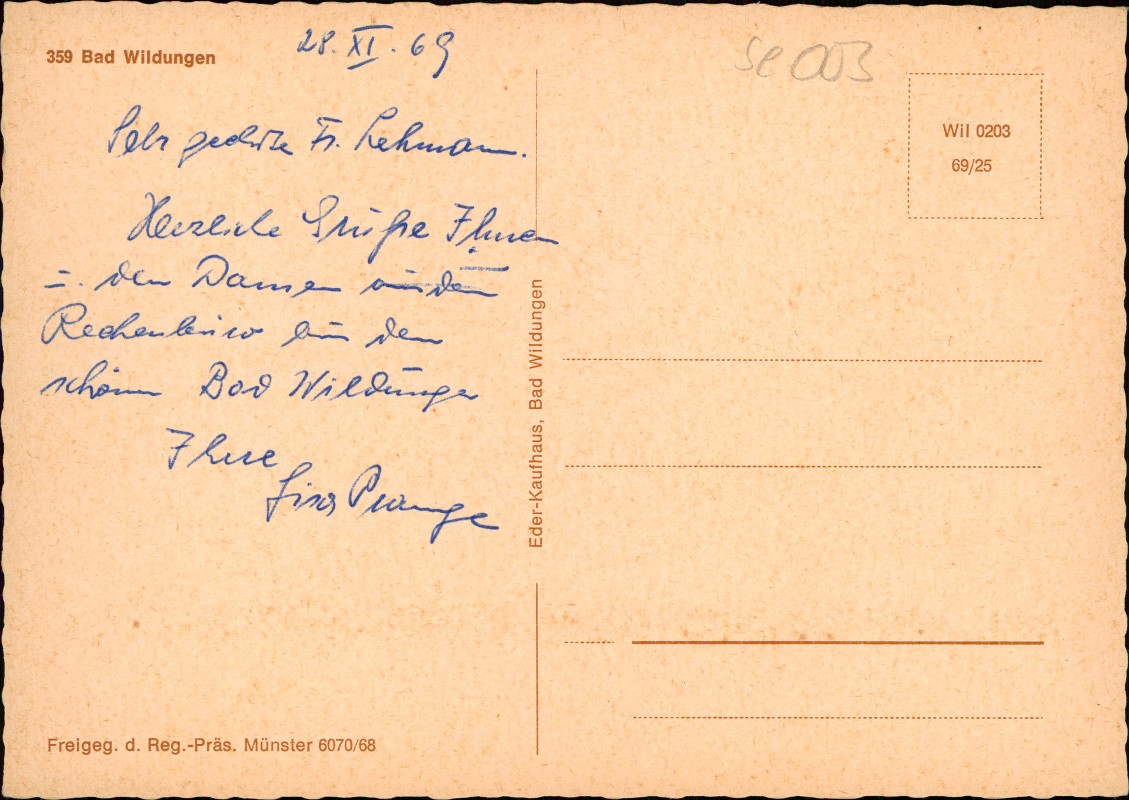 359 Bad Wildungen
28. XI. 69
Sehr geehrte Fr. Lehmann.
Herzliche Grüße Ihnen
u. den Damen aus dem
Rechenbüro aus dem
schönen Bad Wildungen
Ihre
Lisa Prange
Eder-Kaufhaus, Bad Wildungen
Se 003
Wil 0203
69/25
Freigeg. d. Reg.-Präs. Münster 6070/68